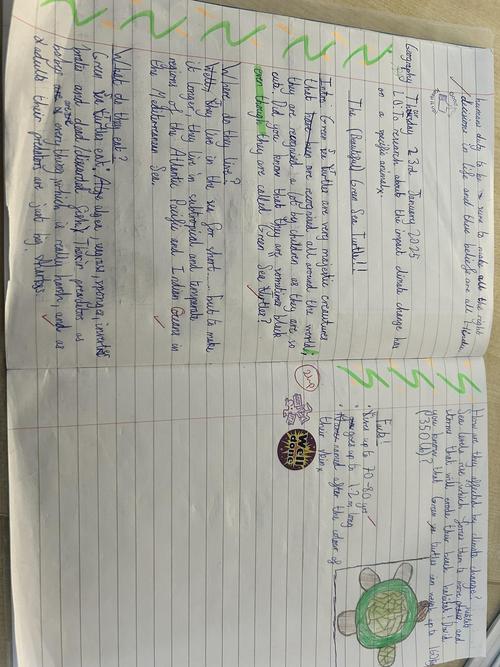 human duty to be
decisions in life and these beliefs are all
Geography Thursday 23rd January 2025
L.O: To research about the impact climate change has
on a specific animal
The (Beautiful) Green Sea Turtle!!!
Intro: Green Sea Turtles are very majestic creatures
that are recognised all around the world;
they are recognised a lot by children as they are so
cute. Did you know that they are sometimes black
even though they are called Green Sea turtles?
Where do they live?
Well, they live in the sea for short... but to make
it longer, they live in subtropical and temperate
regions of the Atlantic, Pacific and Indian Oceans in
the Mediterranean Sea.
What do they eat?
Green Sea turtles eat: Algae, seagrass, sponges, inverte-
brates and discarded fish. Their predators as
babies are everything which is really harsh, and as
adults their predators are just big sharks.
How are they affected by climate change?
Sea levels rise which forces them to more and
storms that will erode their beach habitat. Did
you know that Green Sea turtles can weigh up to
350 lb)?
Facts!
Lives up to 70-80 yrs
goes up to 1.2 m long
named after the colour of
their skin
Well
done